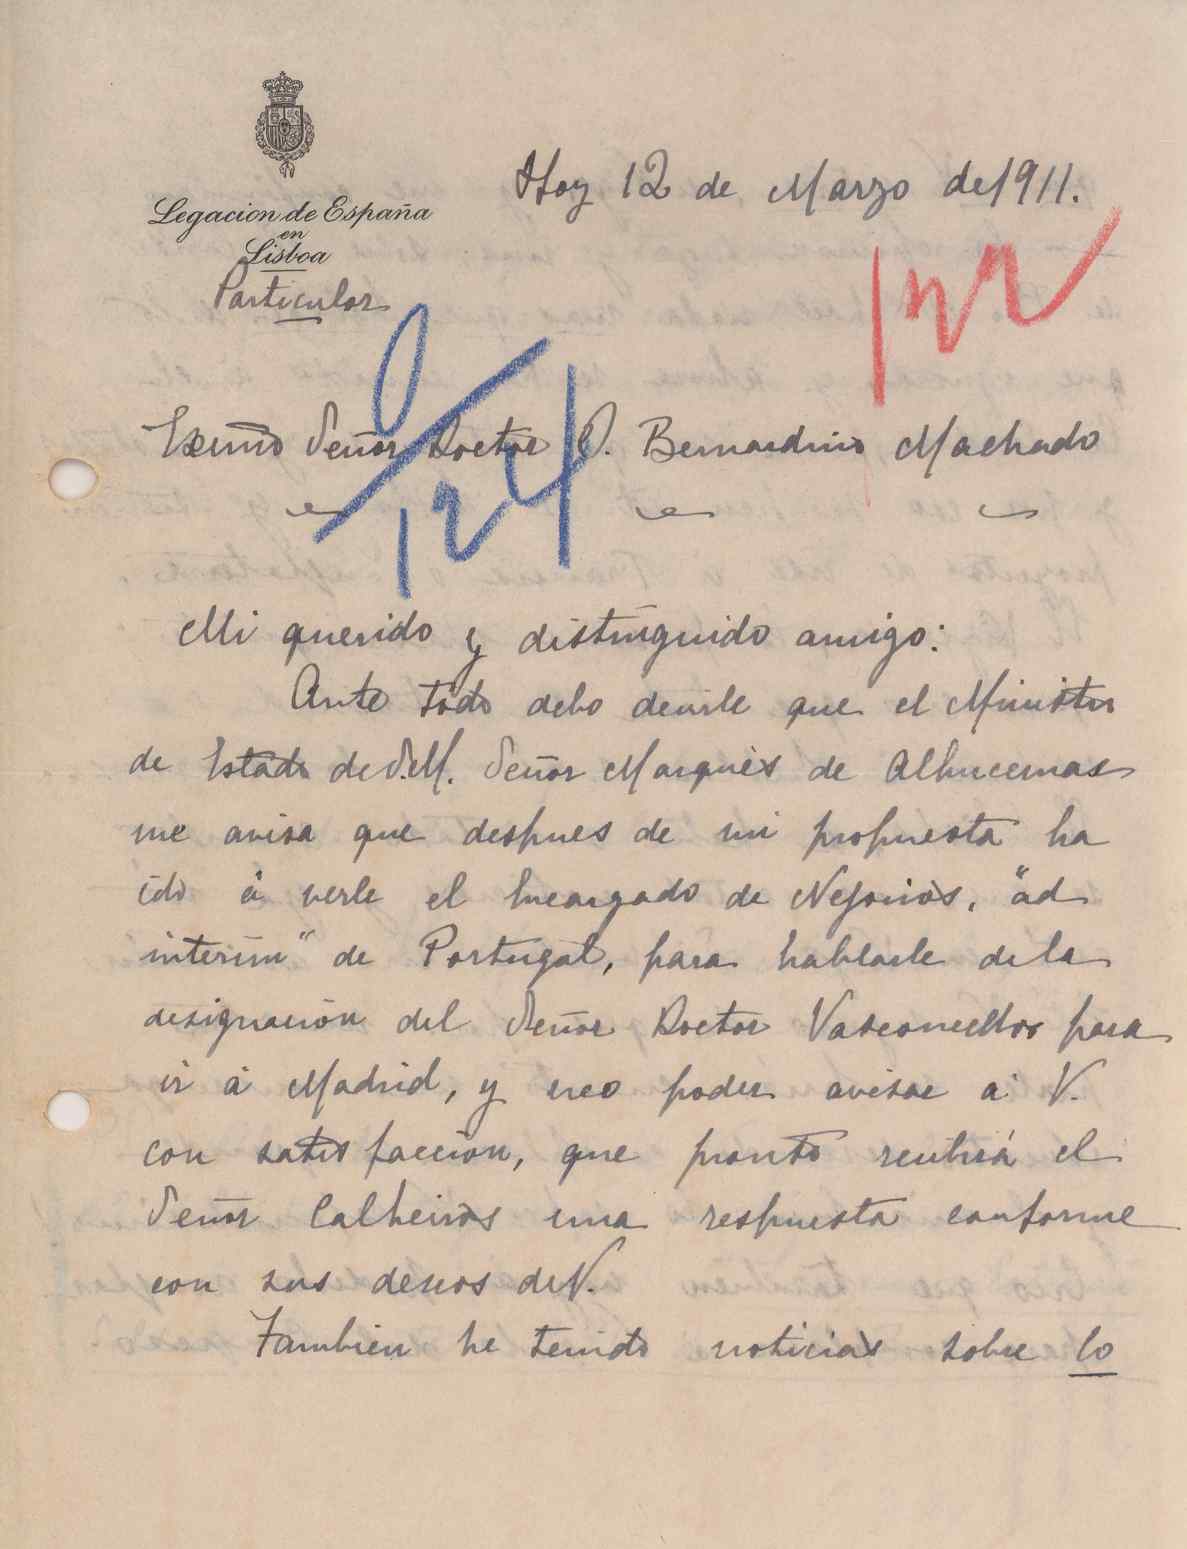 Legacion de España
en
Lisboa
Particular
Hoy 12 de Marzo de 1911.
Exmo Señor Doctor D. Bernardino Machado
Mi querido y distinguido amigo:
Ante todo debo decirle que el Ministro
de Estado de S.M. Señor Marqués de Alhucemas
me avisa que despues de mi propuesta ha
ido á verle el Encargado de Negocios, "ad
interim" de Portugal, para hablarle de la
designación del Señor Doctor Vasconcellos para
ir á Madrid, y creo poder avisar á V.
con satisfaccion, que pronto recibirá el
Señor Calheiros una respuesta conforme
con sus deseos de V.
Tambien he tenido noticias sobre lo